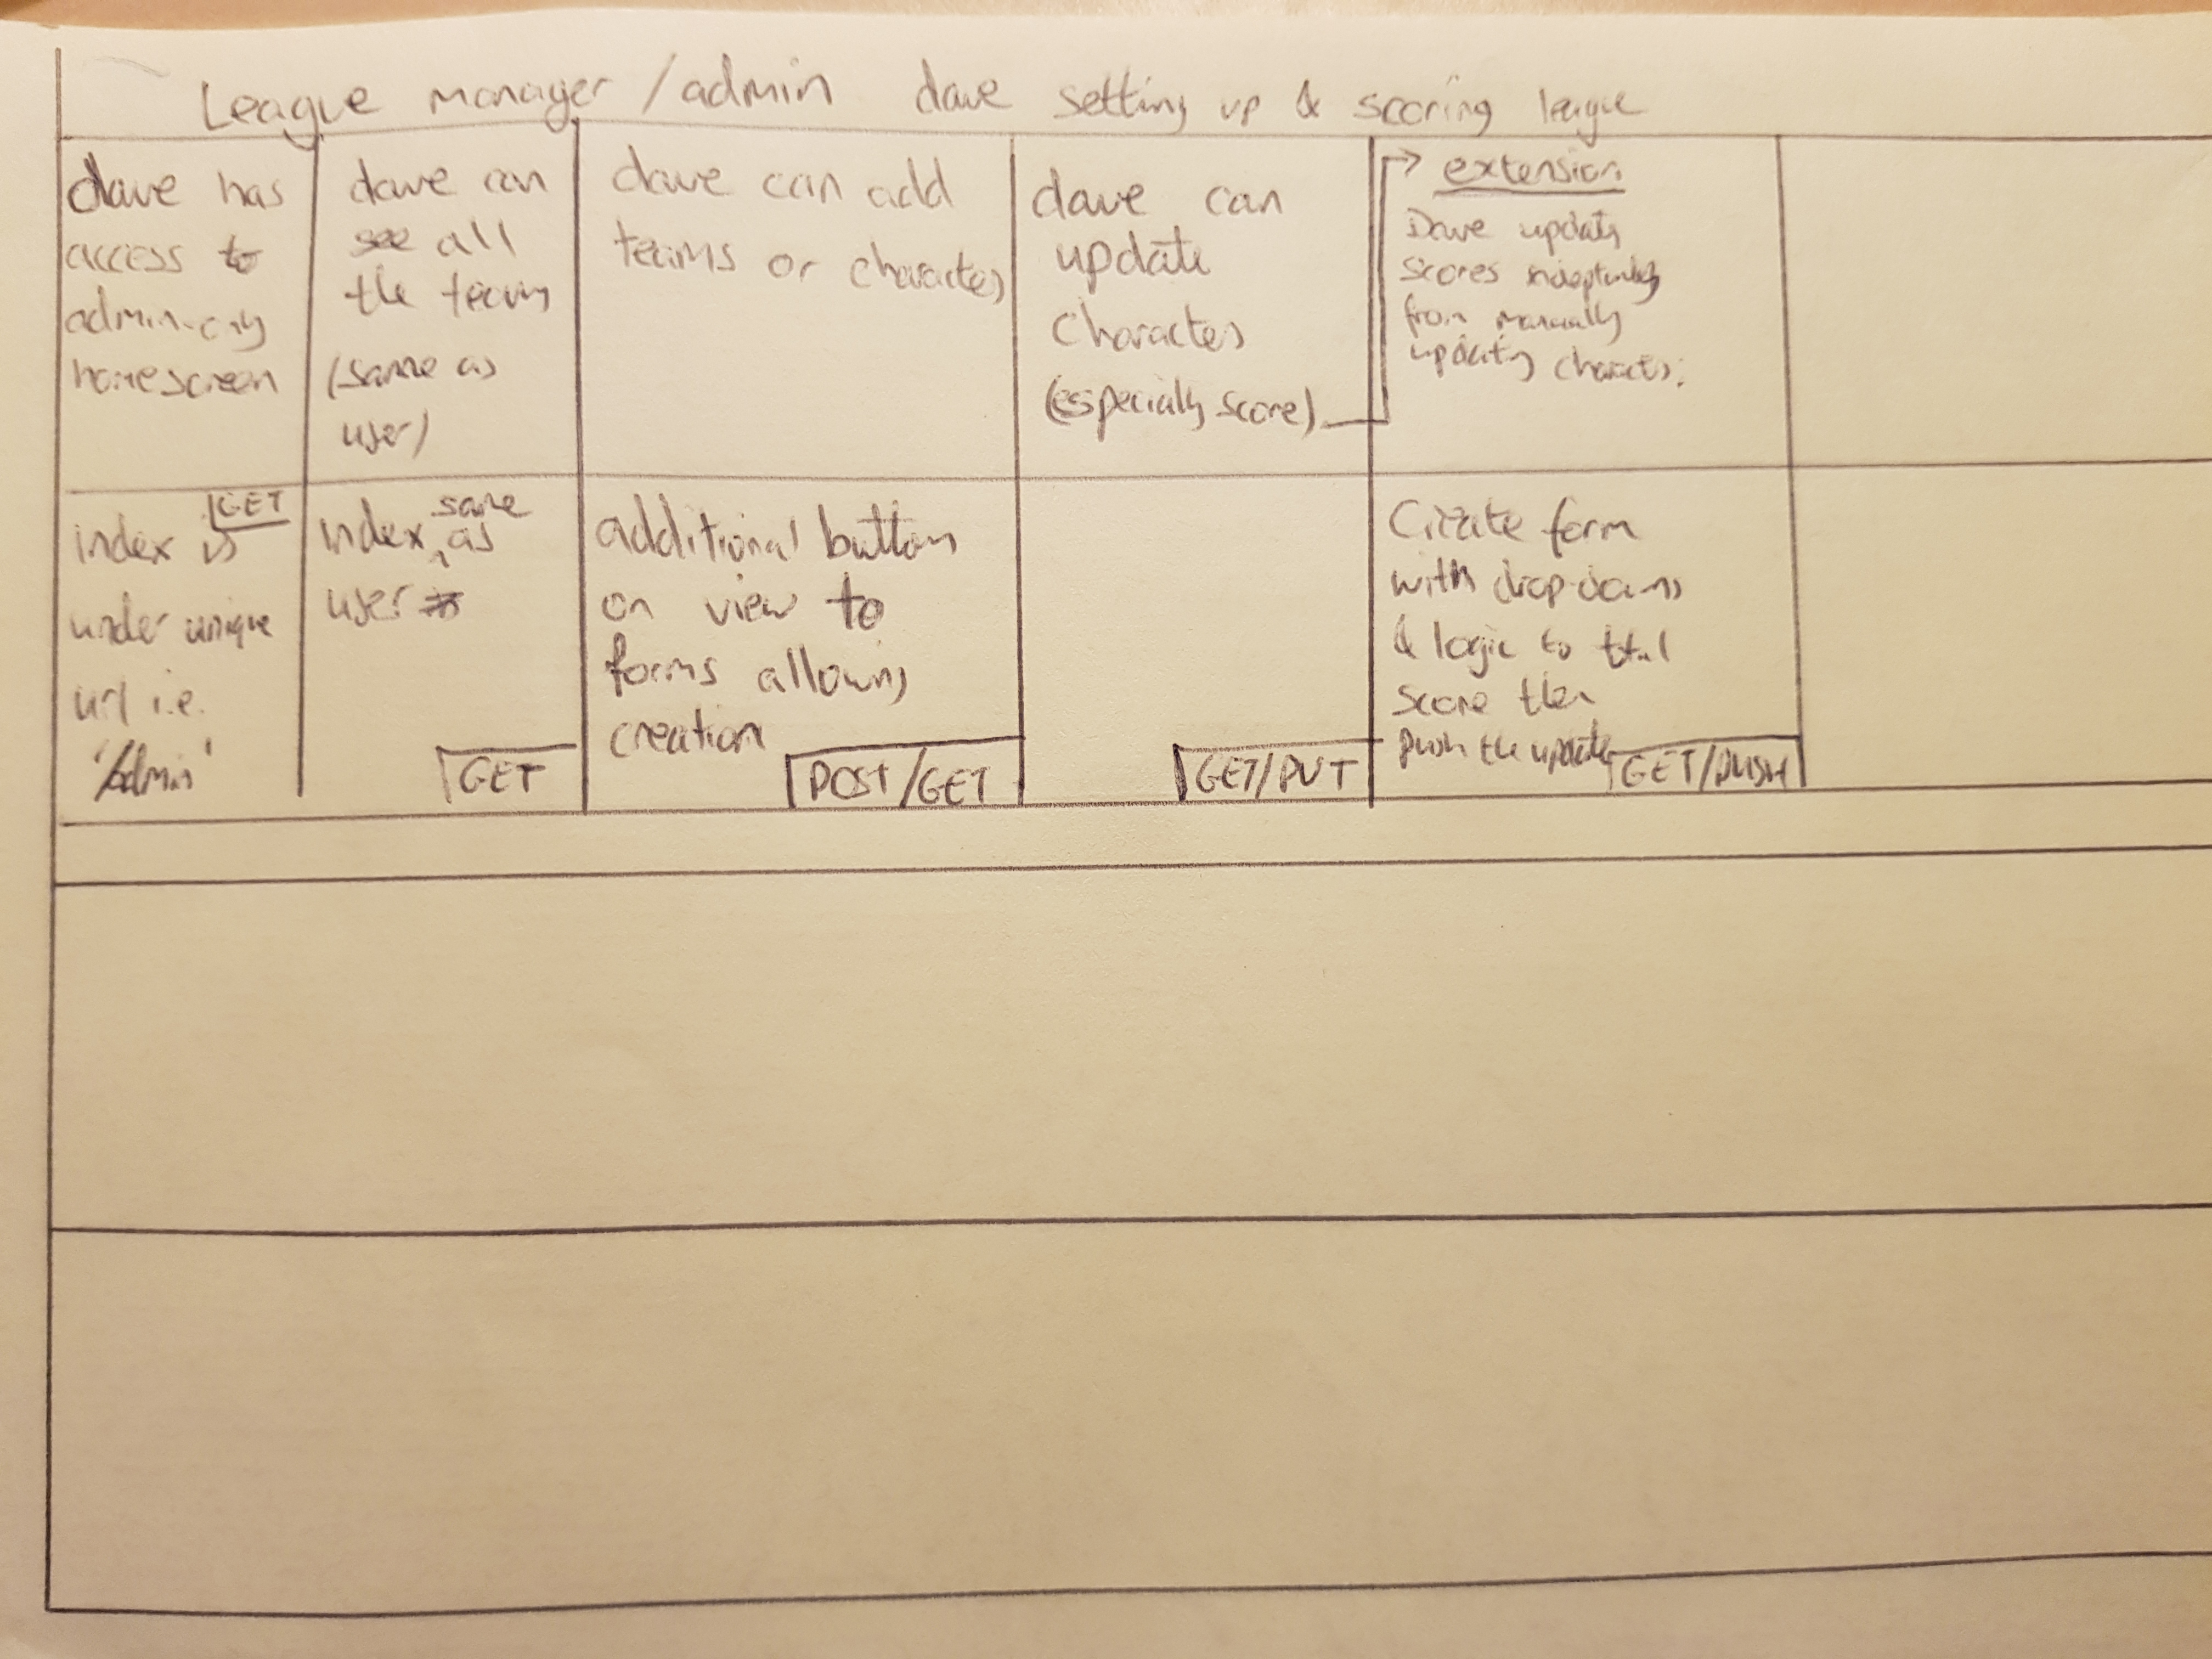 League manager / admin dave setting up & scoring league
dave has
access to
admin-only
homescreen
dave can
see all
the teams
(same as
user)
dave can add
teams or characters
dave can
update
characters
(especially score)
extension
Dave updates
scores independently
from manually
updating characters.
GET
index is
under unique
url i.e.
'/admin'
same
index as
user
GET
additional button
on view to
forms allows
creation
POST/GET
GET/PUT
Create form
with dropdowns
& logic to total
score then
push the update
GET/PUSH